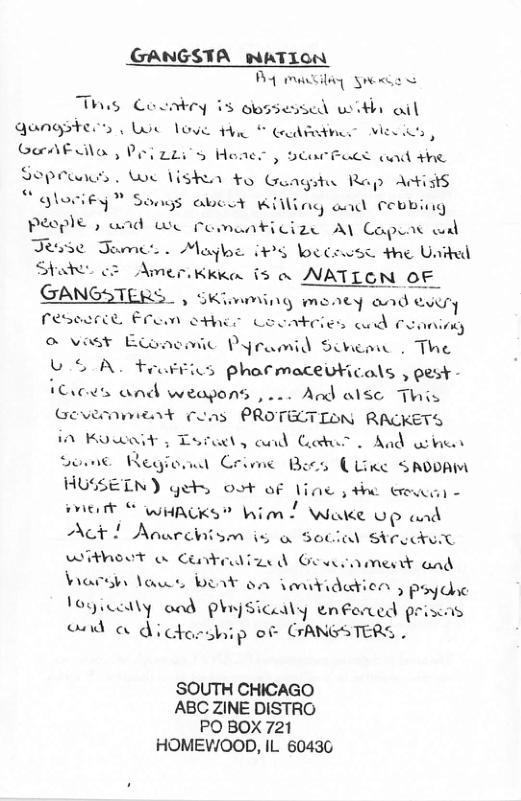 GANGSTA NATION
By MALSHAY JACKSON
This Country is obssessed with all
gangsters. We love the "Godfather Movies,
GoodFella, Prizzi's Honer, Scarface and the
Sopranos. We listen to Gangsta Rap Artists
"glorify" Songs about Killing and robbing
people, and we romanticize Al Capone and
Jesse James. Maybe it's because the United
States of Amerikkka is a NATION OF
GANGSTERS, skimming money and every
resource from other countries and running
a vast Economic Pyramid Scheme. The
U.S.A. traffics pharmaceuticals, pest-
icides and weapons,... And also This
Government runs PROTECTION RACKETS
in Kuwait, Israel, and Qatar. And when
Some Regional Crime Boss (Like SADDAM
HUSSEIN) gets out of line, the Govern-
ment "WHACKS" him! Wake up and
Act! Anarchism is a Social Structure
without a Centralized Government and
harsh laws bent on imitidation, psycho
logically and physically enforced prisons
and a dictarship of GANGSTERS.
SOUTH CHICAGO
ABC ZINE DISTRO
PO BOX 721
HOMEWOOD, IL 60430